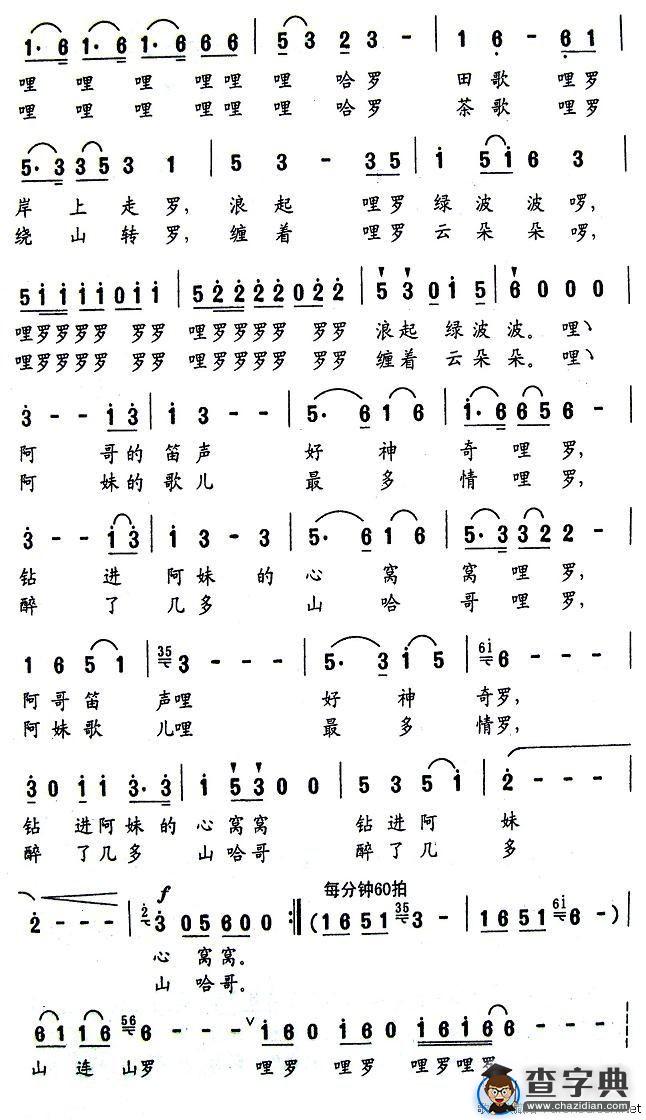 1· 6 1· 6 1· 6 6 6 | 5 3 2 3 - | 1 6 - 6 1 |
哩 哩 哩 哩哩 哩 哈罗 田歌 哩罗
哩 哩 哩 哩哩 哩 哈罗 茶歌 哩罗
5· 3 3 5 3 1 | 5 3 - 3 5 | i 5 i 6 3 |
岸 上 走 罗, 浪 起 哩罗 绿 波 波 啰,
绕 山 转 罗, 缠 着 哩罗 云 朵 朵 啰,
5 i i i i 0 i i | 5 2 2 2 2 0 2 2 | 5 3 0 i 5 | 6 0 0 0 |
哩罗罗罗罗 罗罗 哩罗罗罗罗 罗罗 浪起 绿波 波。 哩
哩罗罗罗罗 罗罗 哩罗罗罗罗 罗罗 缠着 云朵 朵。 哩
3 - - i 3 | i 3 - - | 5· 6 1 6 | i· 6 6 5 6 - |
阿 哥的 笛声 好 神 奇 哩 罗,
阿 妹的 歌儿 最 多 情 哩 罗,
3 - - i 3 | i 3 - 3 | 5· 6 1 6 | 5· 3 3 2 2 - |
钻 进 阿 妹 的 心 窝 窝 哩 罗,
醉 了 几 多 山 哈 哥 哩 罗,
1 6 5 1 | 35 3 - - - | 5· 3 i 5 | 6i 6 - - - |
阿哥笛 声哩 好 神 奇罗,
阿妹歌 儿哩 最 多 情罗,
3 0 i i 3· 3 | i 5 3 0 0 | 5 3 5 i | 2 - - - |
钻 进阿 妹 的 心 窝窝 钻 进 阿 妹
醉 了几 多 山 哈哥 醉 了 几 多
f 每分钟60拍
2 - - - | 2 3 0 5 6 0 0 :‖ (1 6 5 1 35 3 - | 1 6 5 1 6i 6 - ) |
心 窝窝。
山 哈哥。
6 1 1 6 56 6 - - - ∨ i 6 0 i 6 0 i 6 i 6 6 - -
山 连 山罗 哩罗 哩罗 哩罗哩罗
查字典
www.chazidian.com